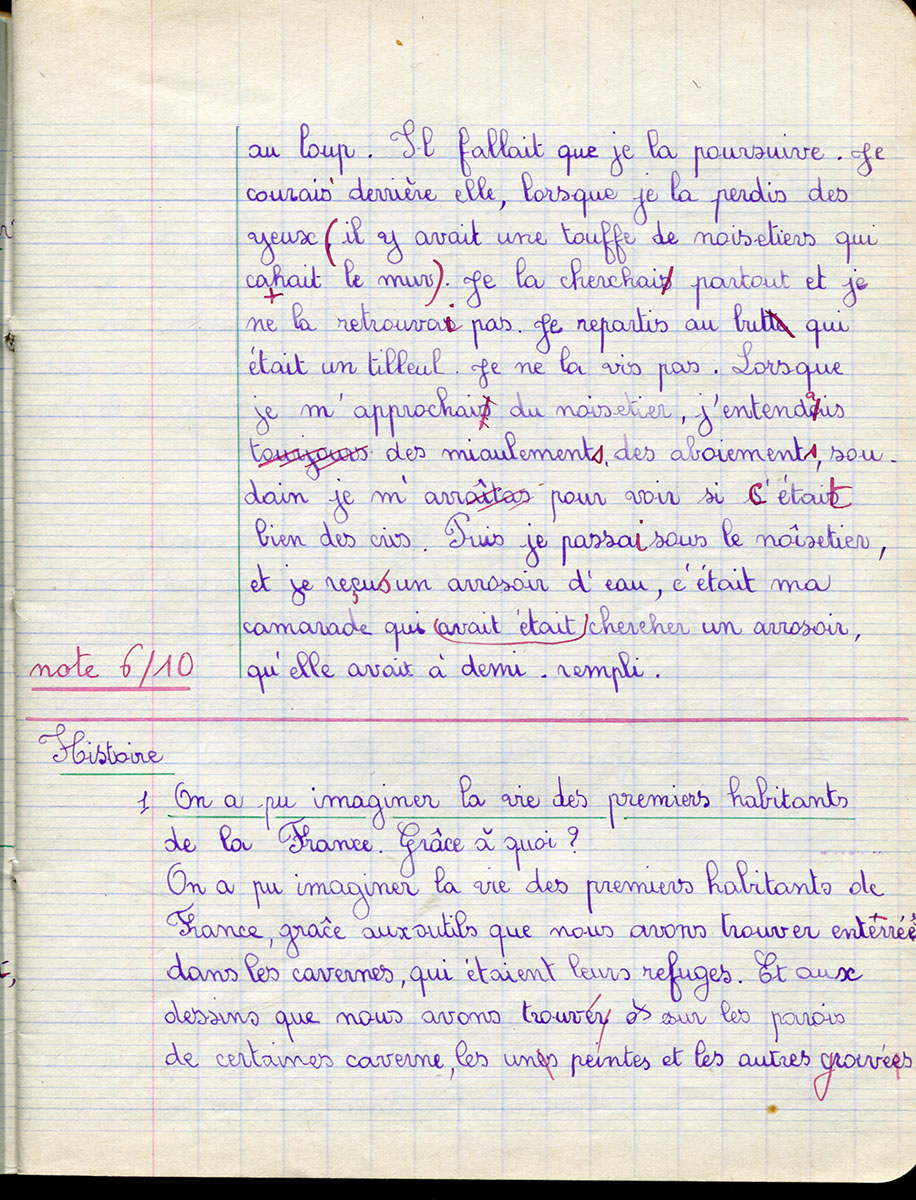 au loup. Il fallait que je la poursuive. Je
courais derrière elle, lorsque je la perdis des
yeux (il y avait une touffe de noisetiers qui
cahait le mur). Je la cherchais partout et je
ne la retrouvai pas. Je repartis au but qui
était un tilleul. Je ne la vis pas. Lorsque
je m'approchais du noisetier, j'entendais
toujours des miaulements, des aboiements, sou-
dain je m'arraîtas pour voir si c'était
bien des cris. Puis je passai sous le noîsetier,
et je reçus un arrosoir d'eau, c'était ma
camarade qui (avait était) chercher un arrosoir,
note 6/10 qu'elle avait à demi-rempli.
Histoire
1 On a pu imaginer la vie des premiers habitants
de la France. Grâce à quoi ?
On a pu imaginer la vie des premiers habitants de
France, grâce aux outils que nous avons trouver enterrés
dans les cavernes, qui étaient leurs refuges. Et aux
dessins que nous avons trouver sur les parois
de certaines caverne, les uns peintes et les autres gravés